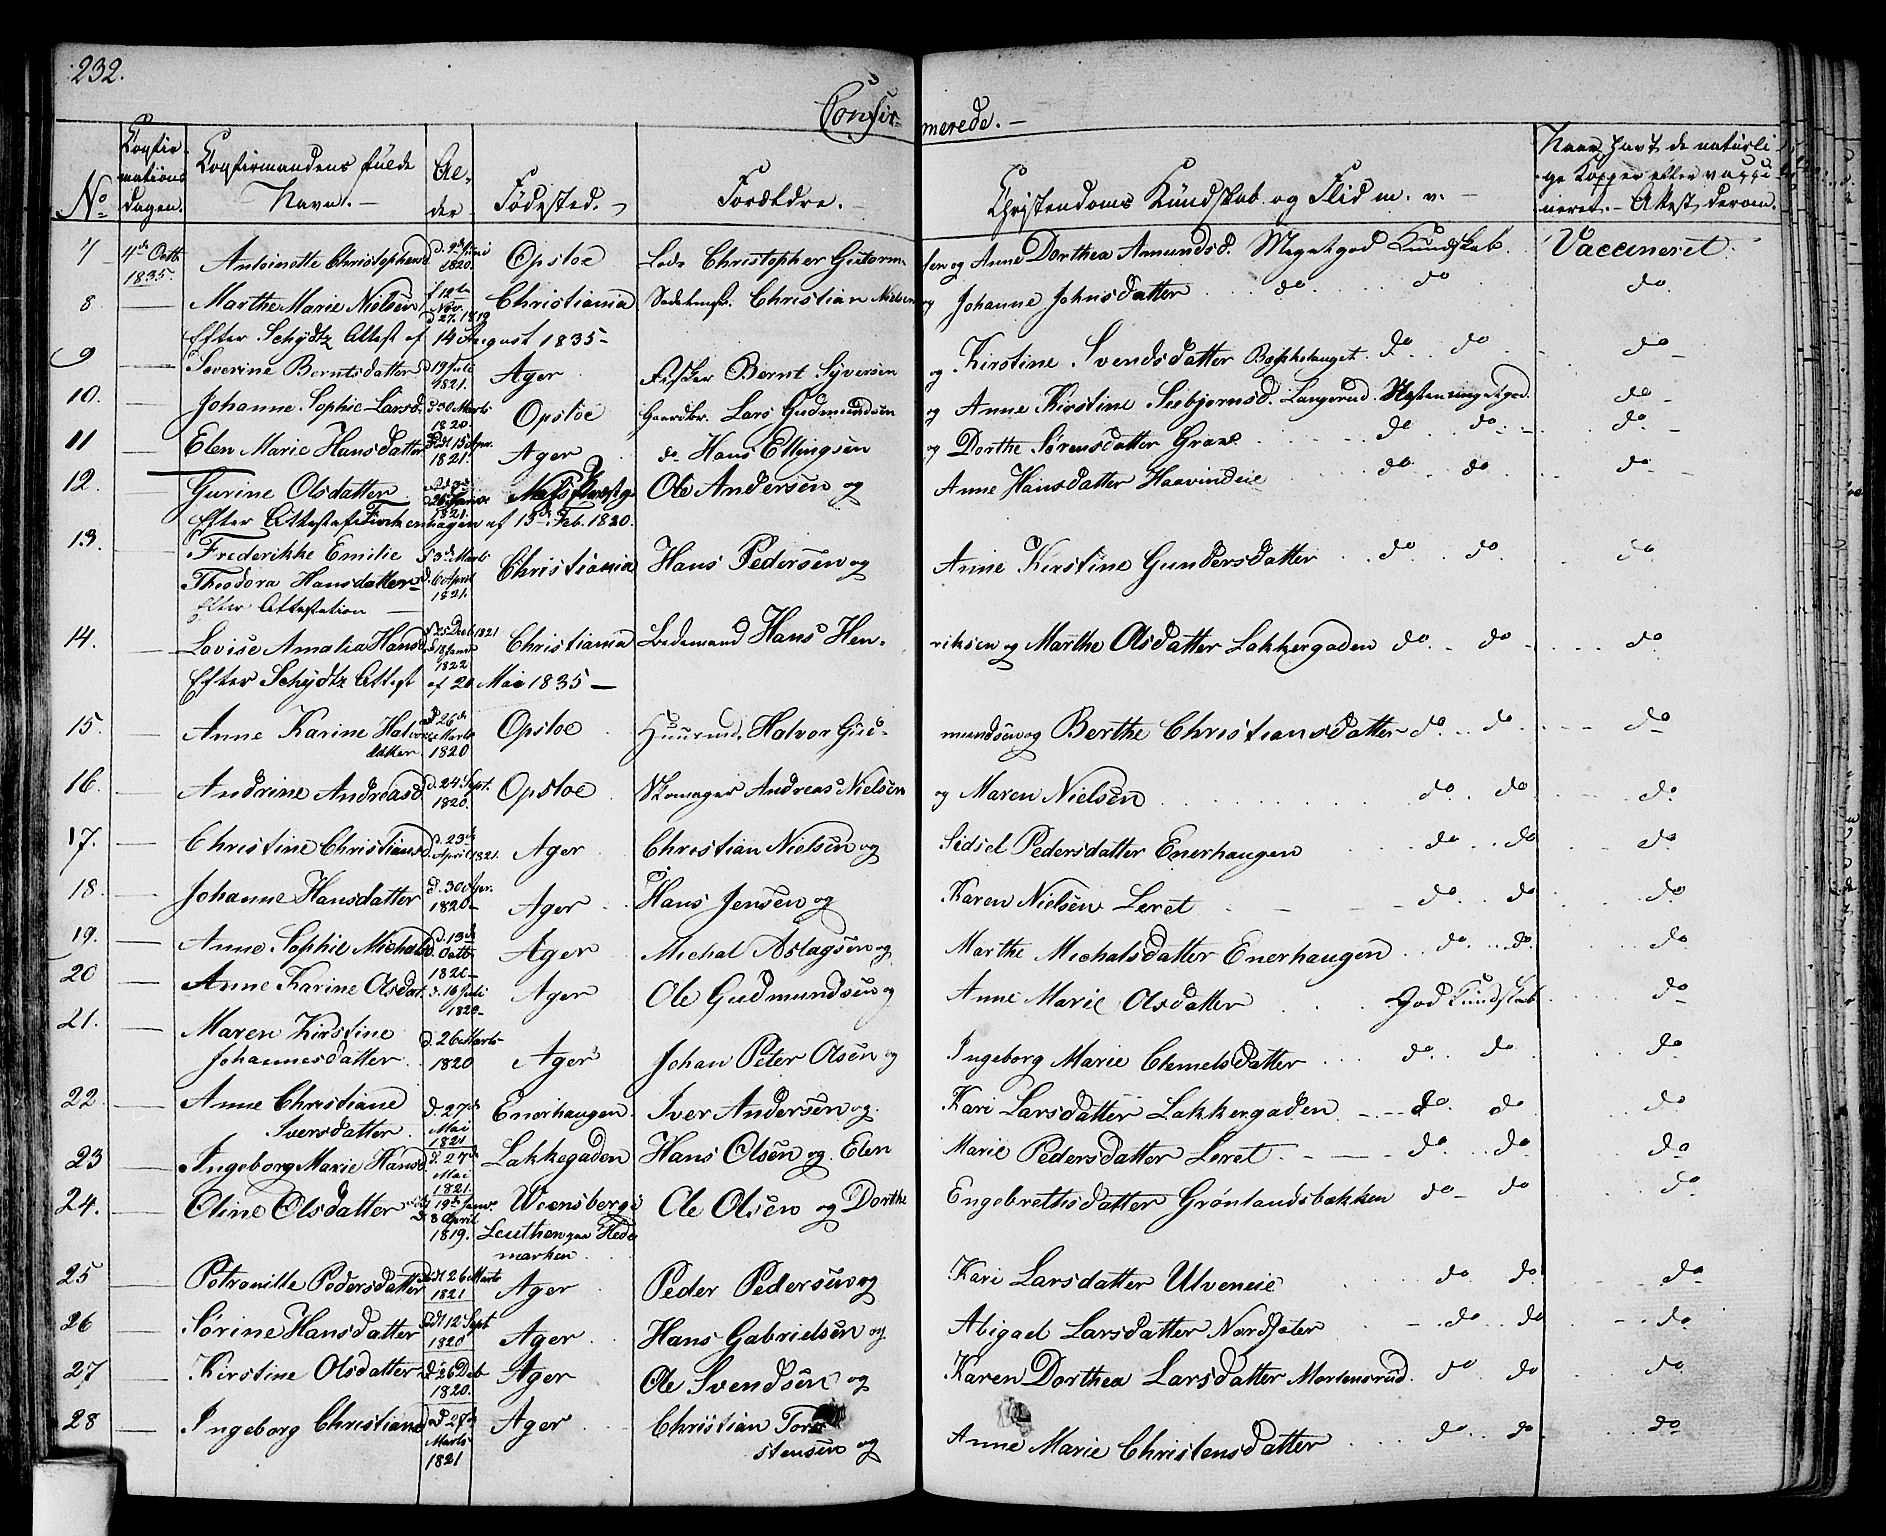 232.
Confirmerede. –
No
Confirmations dagen.
Confirmandens fulde Navn. –
Alder
Fødested.
Forældre. –
Christendoms Kundskab og Flid m. v. –
Naar havt de naturlige Kopper eller vaccineret. – Attest derom.
7 4de Octb. 1835. Antoinette Christophersd. d. 9de Juni 1820. Opsloe Lods Christopher Guttormsen og Anne Dorthea Amundsd. Meget god Kundskab. Vaccineret.
8 — Marthe Marie Nielsen f 12te Nov. d 27. 1819 Christiania Christian Nielsen og Johanne Johnsdatter do. do do.
Efter Schydtz Attest af 14 August 1835 –
9 — Severine Berntsdatter d 19 Juli 1821. Ager Fisker Bernt Syversen og Kirstine Svendsdatter do. do do
10. — Johanne Sophie Larsd. d 30 Marts 1820. Opsloe Gaardbr. Lars Gudmundsen og Anne Kirstine Seebjørnsd. Langerud. Næsten meget god. do
11 — Elen Marie Hansdatter Født 15 Apr. 1821. Ager do Hans Ellingsen og Dorthe Sørensdatter do do do
12. — Gurine Olsdatter 1821. Ole Andersen og Anne Hansdatter Haavindeie do do do
Efter Attest af af 15de Feb. 1820.
13. — Frederikke Emilie Theodora Hansdatter f 3de Marts d. 6 April 1821. Christiania Hans Pedersen og Anne Kirstine Gundersdatter do do. do
Efter Attestation —
14. — Lovise Amalia Hansd. f 25 Decb 1821 d 18 Janv. 1822 Christiania Bedemand Hans Henriksen og Marthe Olsdatter Lakkergaden do. do do
Efter Schydtz Attest af 20 Mai 1835 —
15. — Anne Karine Halvorsdatter d 26de Marts 1820 Opsloe Huusmd. Halvor Gudmundsen og Berthe Christiansdatter do. do do
16. — Andrine Andreasd. d. 24 Sept. 1820. Opsloe Skomager Andreas Nielsen og Maren Nielsen do. do do.
17. — Christine Christiansd. d. 23de April 1821. Ager Christian Nielsen og Sidsel Pedersdatter Enerhaugen do do do
18. — Johanne Hansdatter d. 30 Apr. 1820 – Ager Hans Jensen og Karen Nielsen Leret do do do.
19. — Anne Sophie Michalsd. d. 13de Octb 1820 – Ager Michal Aslagsen og Marthe Michalsdatter Enerhaugen do. do. do
20 — Anne Karine Olsdat. d. 16 Juli 1820 – Ager Ole Gudmundsen og Anne Marie Olsdatter God Kundskab do
21. — Maren Kirstine Johannesdatter d. 26 Marts 1820 Ager Johan Peter Olsen og Ingeborg Marie Clemetsdatter do. do do
22. — Anne Christiane Iversdatter d. 27de Mai 1821 Enerhaugen. Iver Andersen og Kari Larsdatter Lakkergaden do. do do
23 — Ingeborg Marie Hansd. d. 27de Mai 1821. Lakkegaden Hans Olsen og Elen Marie Pedersdatter Leret do do do
24. — Oline Olsdatter 19de Janv. d 8 April 1819. Leuthen paa Hedemarken Ole Olsen og Dorthe Engebrethsdatter Grønlandsbakken do do do.
25 — Petronille Pedersdatter Født 26 Marts 1821 Ager Peder Pedersen og Kari Larsdatter Ulveneie do do do
26 — Sørine Hansdatter Født 12 Sept 1820 Ager Hans Gabrielsen og Abigael Larsdatter Nordseter do do do
27 — Kirstine Olsdatter d 26 Deb 1820. Ager Ole Svendsen og Karen Dorthea Larsdatter Mortensrud. do do do
28 — Ingeborg Christiansd. d 28de Marts 1821 Ager Christian Torstensen og Anne Marie Christensdatter do do do